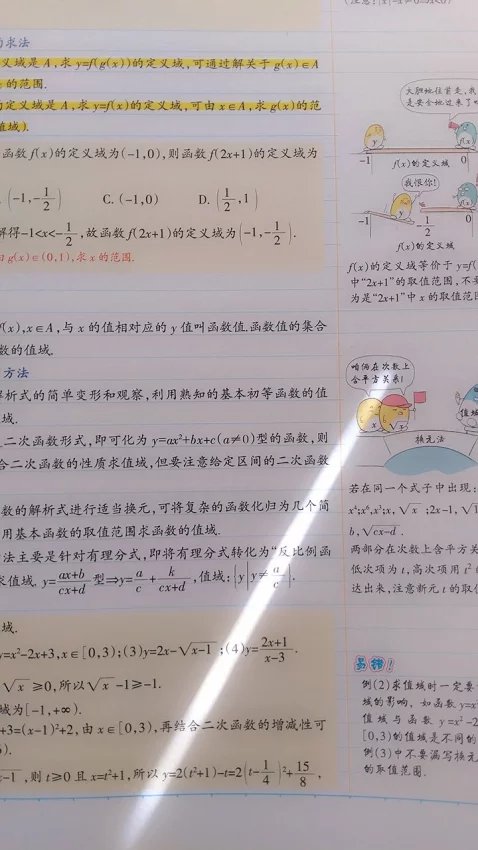 的求法
义域是 A,求 y=f(g(x))的定义域,可通过解关于 g(x)∈A
的范围.
的定义域是 A,求 y=f(x)的定义域,可由 x∈A,求 g(x)的范
值域).
函数 f(x)的定义域为(-1,0),则函数 f(2x+1)的定义域为
(-1,-1/2) C. (-1,0) D. (1/2,1)
解得-1<x<-1/2,故函数 f(2x+1)的定义域为(-1,-1/2).
由 g(x)∈(0,1),求 x 的范围.
f(x),x∈A,与 x 的值相对应的 y 值叫函数值.函数值的集合
数的值域.
方法
解析式的简单变形和观察,利用熟知的基本初等函数的值
域.
二次函数形式,即可化为 y=ax²+bx+c(a≠0)型的函数,则
合二次函数的性质求值域,但要注意给定区间的二次函数
数的解析式进行适当换元,可将复杂的函数化归为几个简
用基本函数的取值范围求函数的值域.
法主要是针对有理分式,即将有理分式转化为“反比例函
求值域. y=(ax+b)/(cx+d)型⇒y=a/c+k/(cx+d),值域:{y|y≠a/c}.
域.
y=x²-2x+3,x∈[0,3);(3)y=2x-√(x-1);(4)y=(2x+1)/(x-3).
√x≥0,所以√x-1≥-1.
域为[-1,+∞).
+3=(x-1)²+2,由 x∈[0,3),再结合二次函数的增减性可
).
x-1,则 t≥0 且 x=t²+1,所以 y=2(t²+1)-t=2(t-1/4)²+15/8,
大胆地往前走,我
是安全地过来了
y
f(x)
-1 f(x)的定义域 0
我恨你!
y
f(x)
-1 -1/2 0
f(x)的定义域
f(x)的定义域等价于 y=f(
中“2x+1”的取值范围,不
为是“2x+1”中 x 的取值范围
咱俩在次数上
含平方关系!
x √x
值域
换元法
若在同一个式子中出现:
x⁴;x⁶,x³;x,√x;2x-1,√
b,√(cx-d).
两部分在次数上含平方关
低次项为 t,高次项用 t²
达出来,注意新元 t 的取值
易错!
例(2)求值域时一定要
域的影响, 如函数 y=x²
值域与函数 y=x²-2
[0,3)的值域是不同的
例(3)中不要漏写换元
的取值范围.